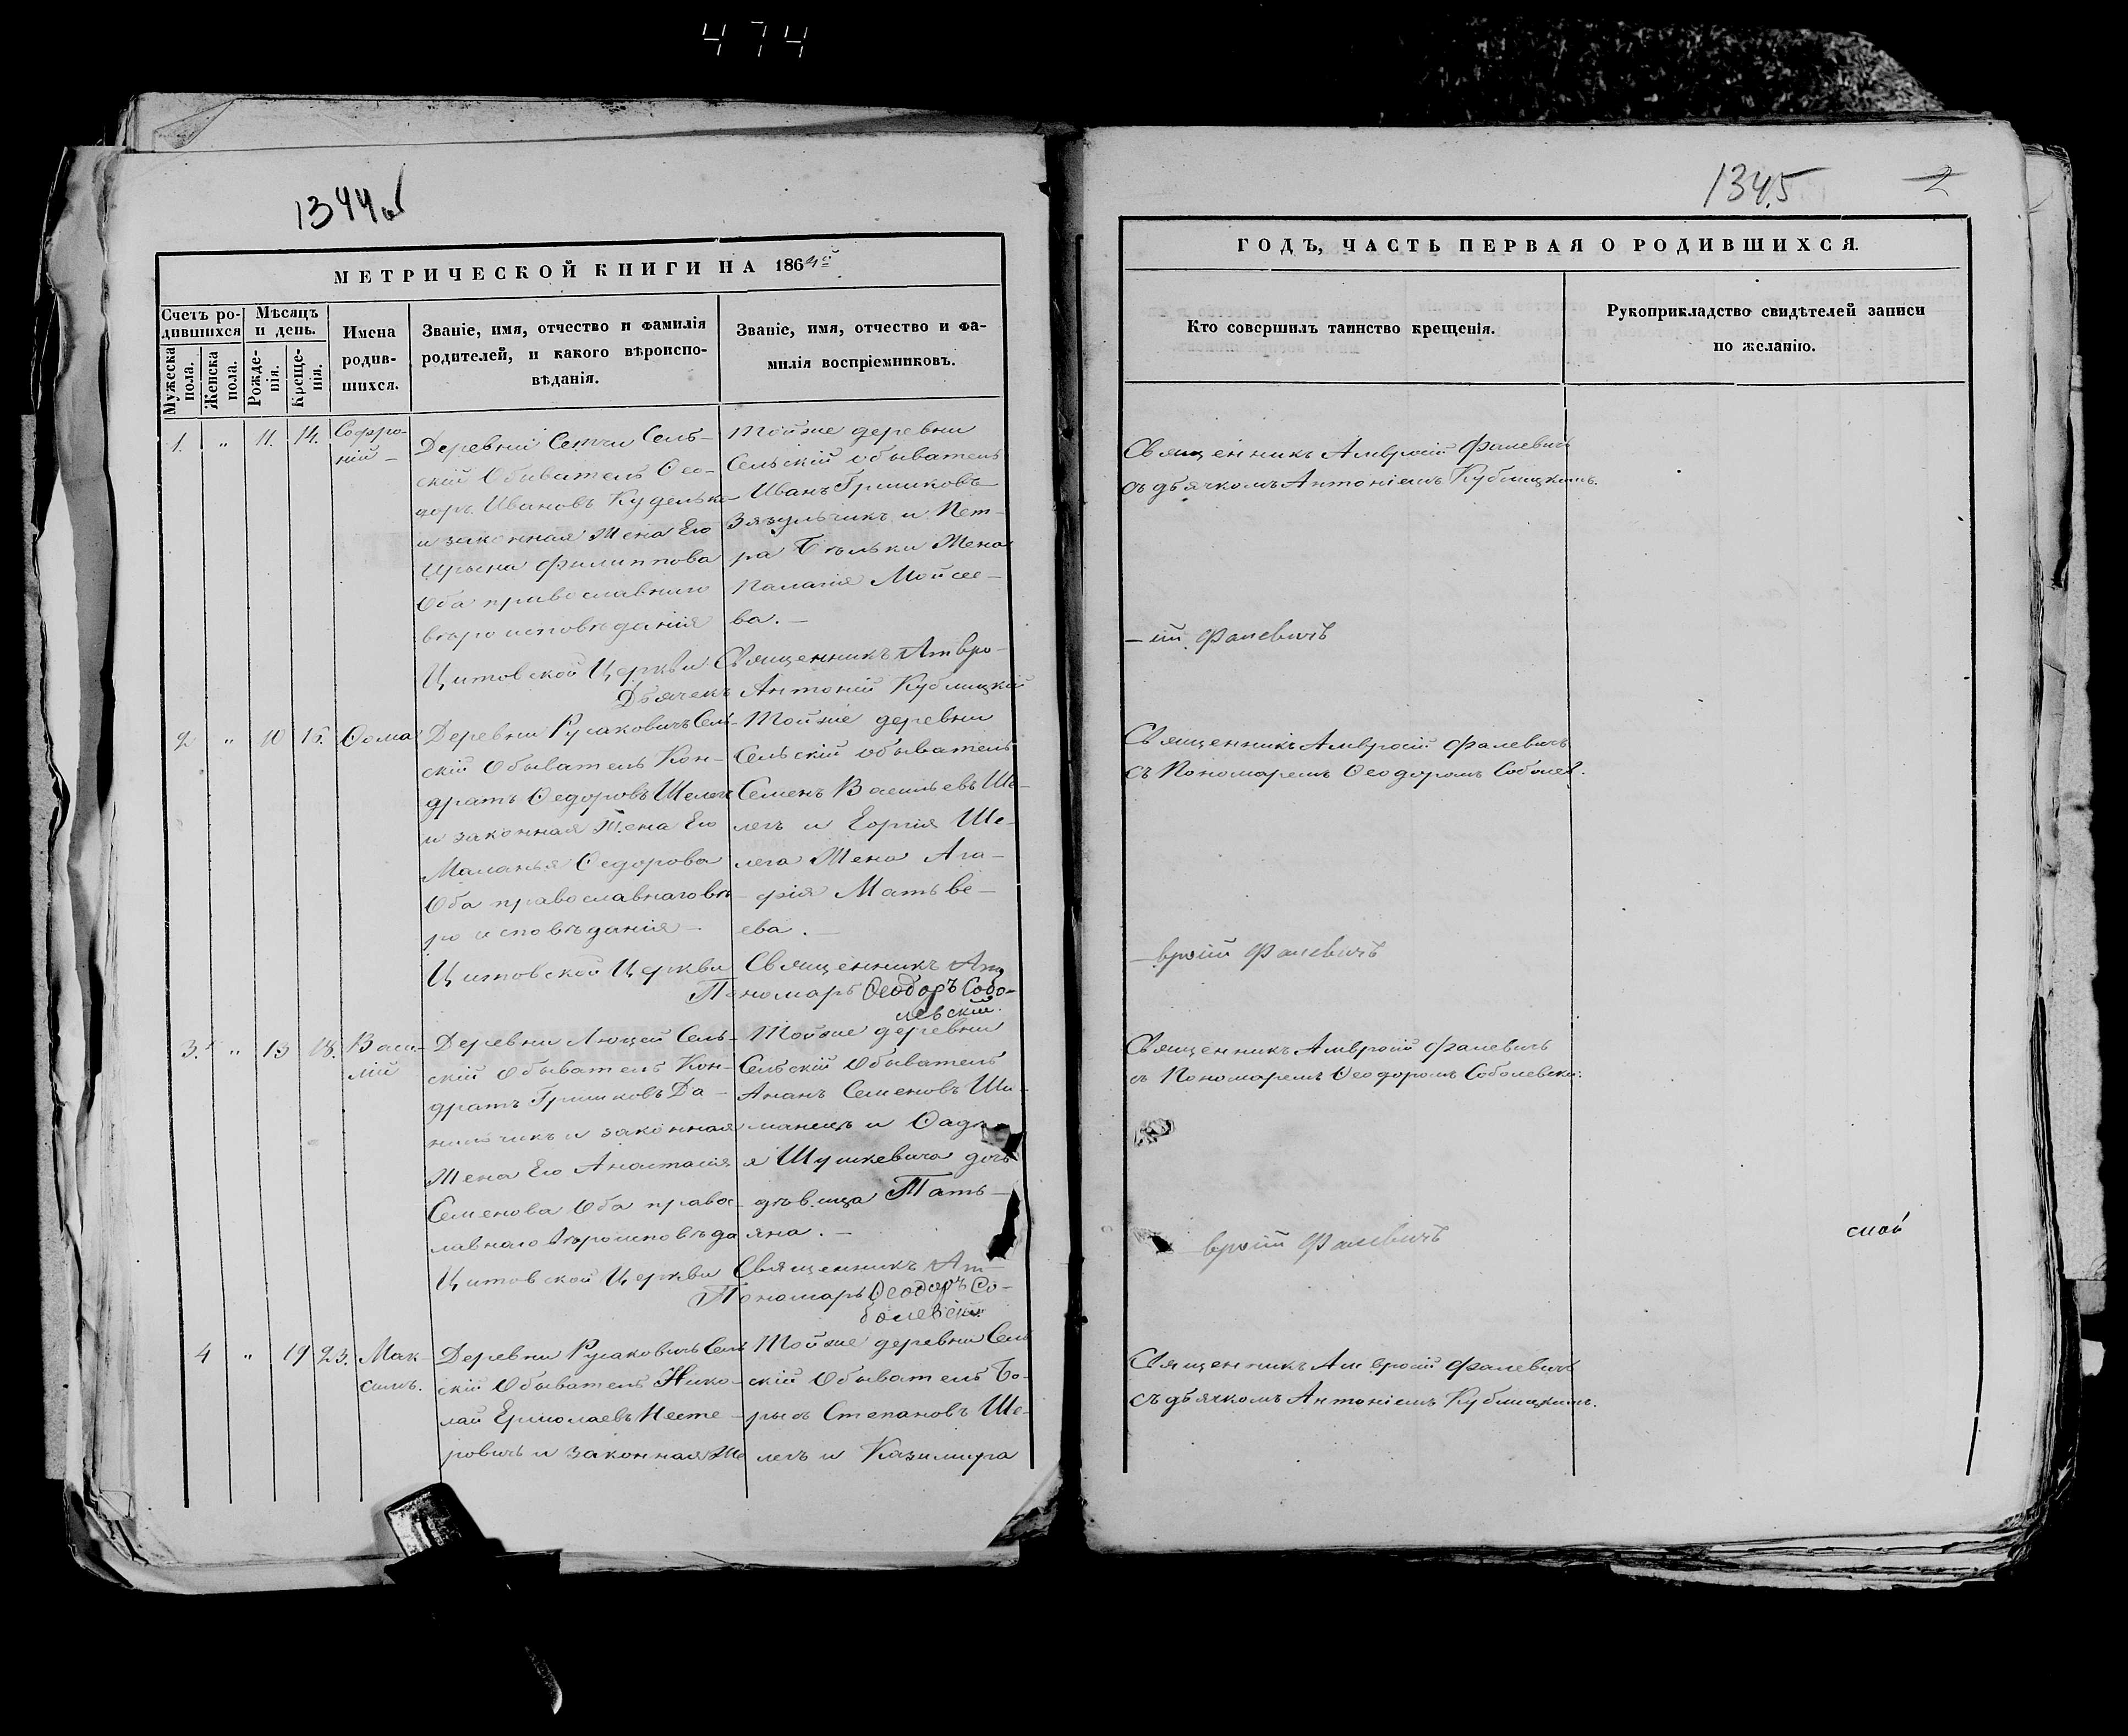 474
1344об
МЕТРИЧЕСКОЙ КНИГИ НА 1864й
Счетъ ро-
дившихся
Мѣсяцъ
и день.
Мужеска
пола.
Женска
пола.
Рожде-
нія.
Креще-
нія.
Имена
родив-
шихся.
Званіе, имя, отчество и фамилія
родителей, и какого вѣроиспо-
вѣданія.
Званіе, имя, отчество и фа-
милія воспріемниковъ.
1. " 11. 14. Софро-
ній –
Деревни Сель-
скій Обыватель Ѳео-
доръ Ивановъ Куделько
и законная Жена Его
Филиппова
Оба православнаго
вѣроисповѣданія
Тойже деревни
Сельскій обыватель
Иванъ Гришковъ
Зязульчикъ и Пет-
ра Бѣльки Жена
Палагія Мойсее-
ва. –
Цитовской Церкви Священникъ Амвро-
Дьячекъ Антоній Кублицкій
2 " 10 16. Ѳома
Деревни Русаковичъ Сель-
скій Обыватель Кон-
дратъ Ѳедоровъ Шелегъ
и законная Жена Его
Маланья Ѳедорова
Оба православнаго вѣ-
роисповѣданія –
Тойже деревни
Сельскій обыватель
Семенъ Васильевъ Ше-
легъ и Ше-
лега Жена Ага-
фія Матѣве-
ева. –
Цитовской Церкви Священникъ Ам
Пономарь Ѳеодоръ Собо-
левскій.
3. " 13 18. Васи-
лій
Деревни Сель-
скій Обыватель Кон-
дратъ Гришковъ Да-
нильчикъ и законная
Жена Его Анастасія
Семенова Оба правос-
лавнаго вѣроисповѣда
Тойже деревни
Сельскій Обыватель
Семеновъ Ши-
манецъ и Ѳад
я Шушкевича дочь
дѣвица Тать-
яна. –
Цитовской Церкви Священникъ Ам-
Пономарь Ѳеодоръ Со-
болевскій
4 " 19 23. Мак-
симъ.
Деревни Русаковичъ Сель
скій Обыватель Нико-
лай Ермолаевъ Несте-
ровичъ и законная Же
Тойже деревни Сель
скій Обыватель Бо-
рисъ Степановъ Ше-
легъ и Казимира
1345
2
ГОДЪ, ЧАСТЬ ПЕРВАЯ О РОДИВШИХСЯ.
Кто совершилъ таинство крещенія.
Рукоприкладство свидѣтелей записи
по желанію.
Священникъ Амвросій Фалевичъ
съ дьячкомъ Антоніемъ Кублицкимъ.
– ій Фалевичъ
Священникъ Амвросій Фалевичъ
съ Пономаремъ Ѳеодоромъ Соболев.
– вросій Фалевичъ
Священникъ Амвросій Фалевичъ
съ Пономаремъ Ѳеодоромъ Соболевски.
вросій Фалевичъ
Священникъ Амвросій Фалевичъ
съ дьячкомъ Антоніемъ Кублицкимъ.